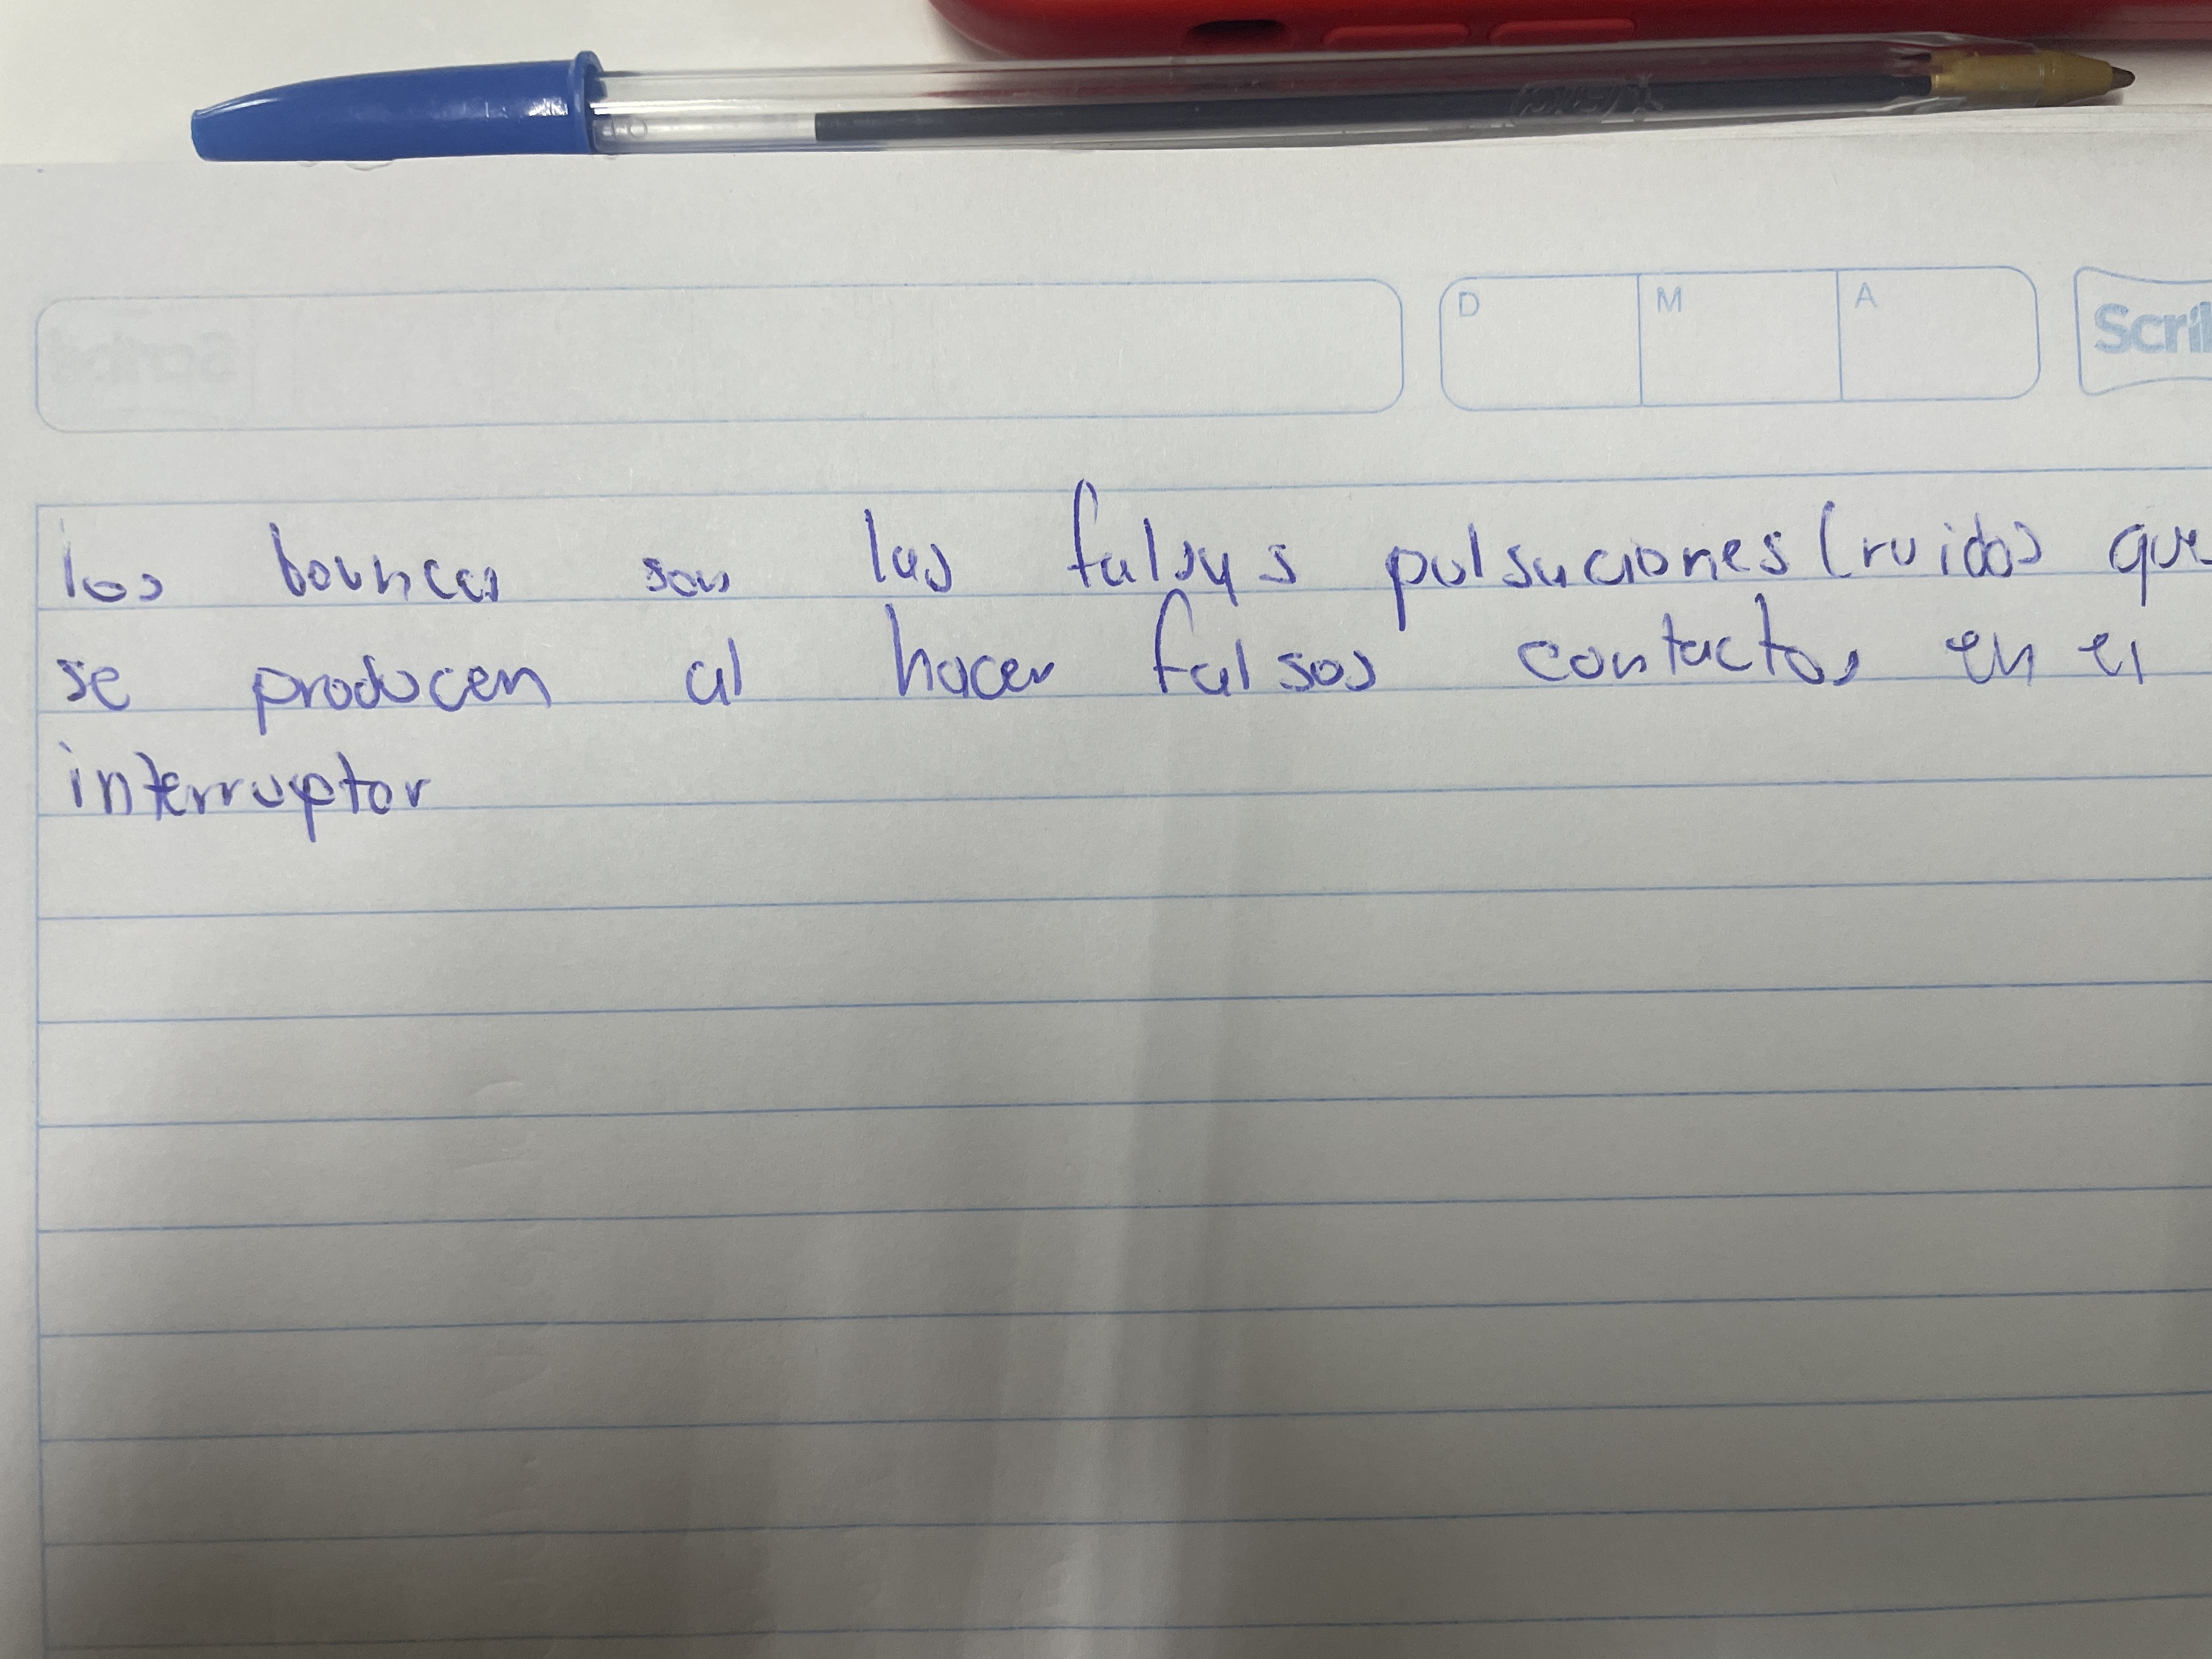 D M A
los bounces son las falsas pulsaciones (ruido) que
se producen al hacer falsos contactos en el
interruptor